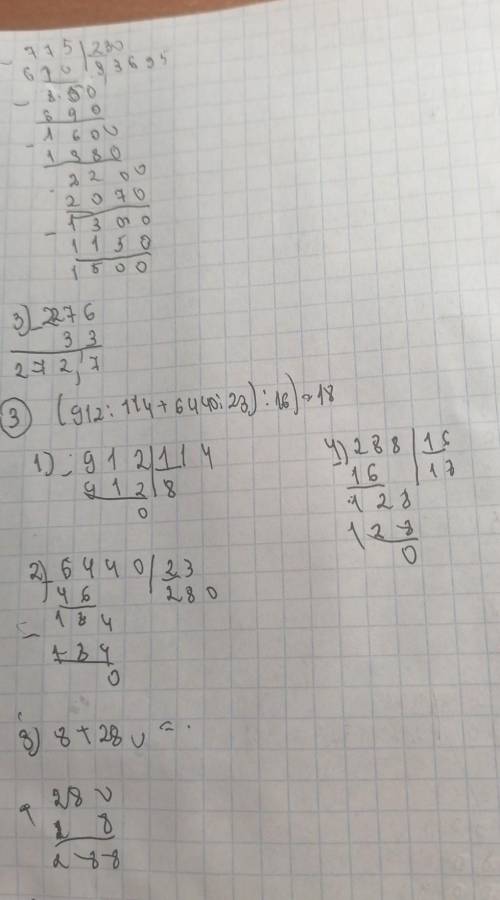 - 775 | 230
690 | 3,3695
- 850
690
- 1600
1380
2200
2070
- 1300
1150
1500
3) - 276
33
272,7
3 (912 : 114 + 6440 : 23) : 16) = 18
1) - 912 | 114
912 | 8
0
4) 288 | 16
16 | 18
128
128
0
2) - 6440 | 23
46 | 280
- 184
184
0
3) 8 + 280 =
+ 280
8
288